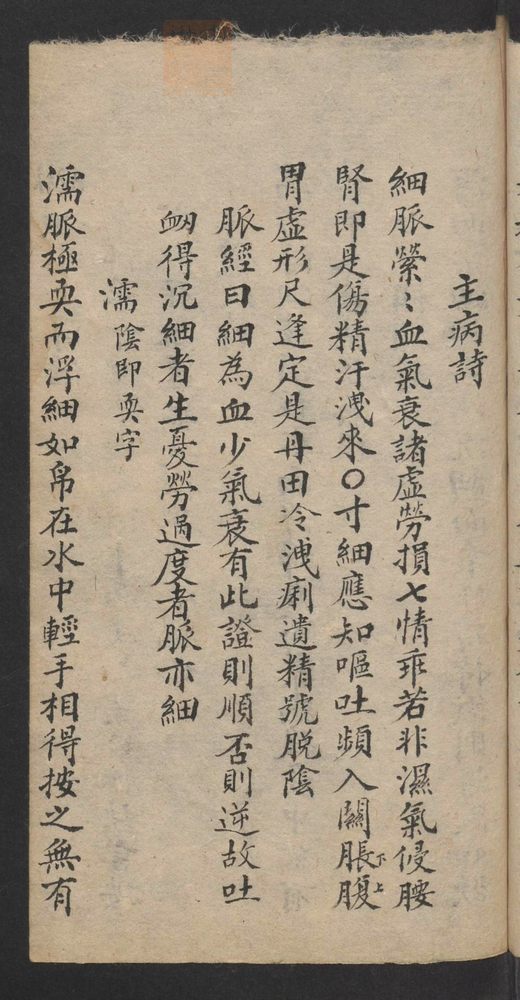 主病詩
細脈縈〻血氣衰諸虛勞損七情乖若非濕氣侵腰
腎即是傷精汗洩來〇寸細應知嘔吐頻入關脹下腹上
胃虛形尺逢定是丹田冷洩痢遺精號脱陰
脈經曰細為血少氣衰有此證則順否則逆故吐
衂得沉細者生憂勞過度者脈亦細
濡陰即耎字
濡脈極耎而浮細如帛在水中輕手相得按之無有